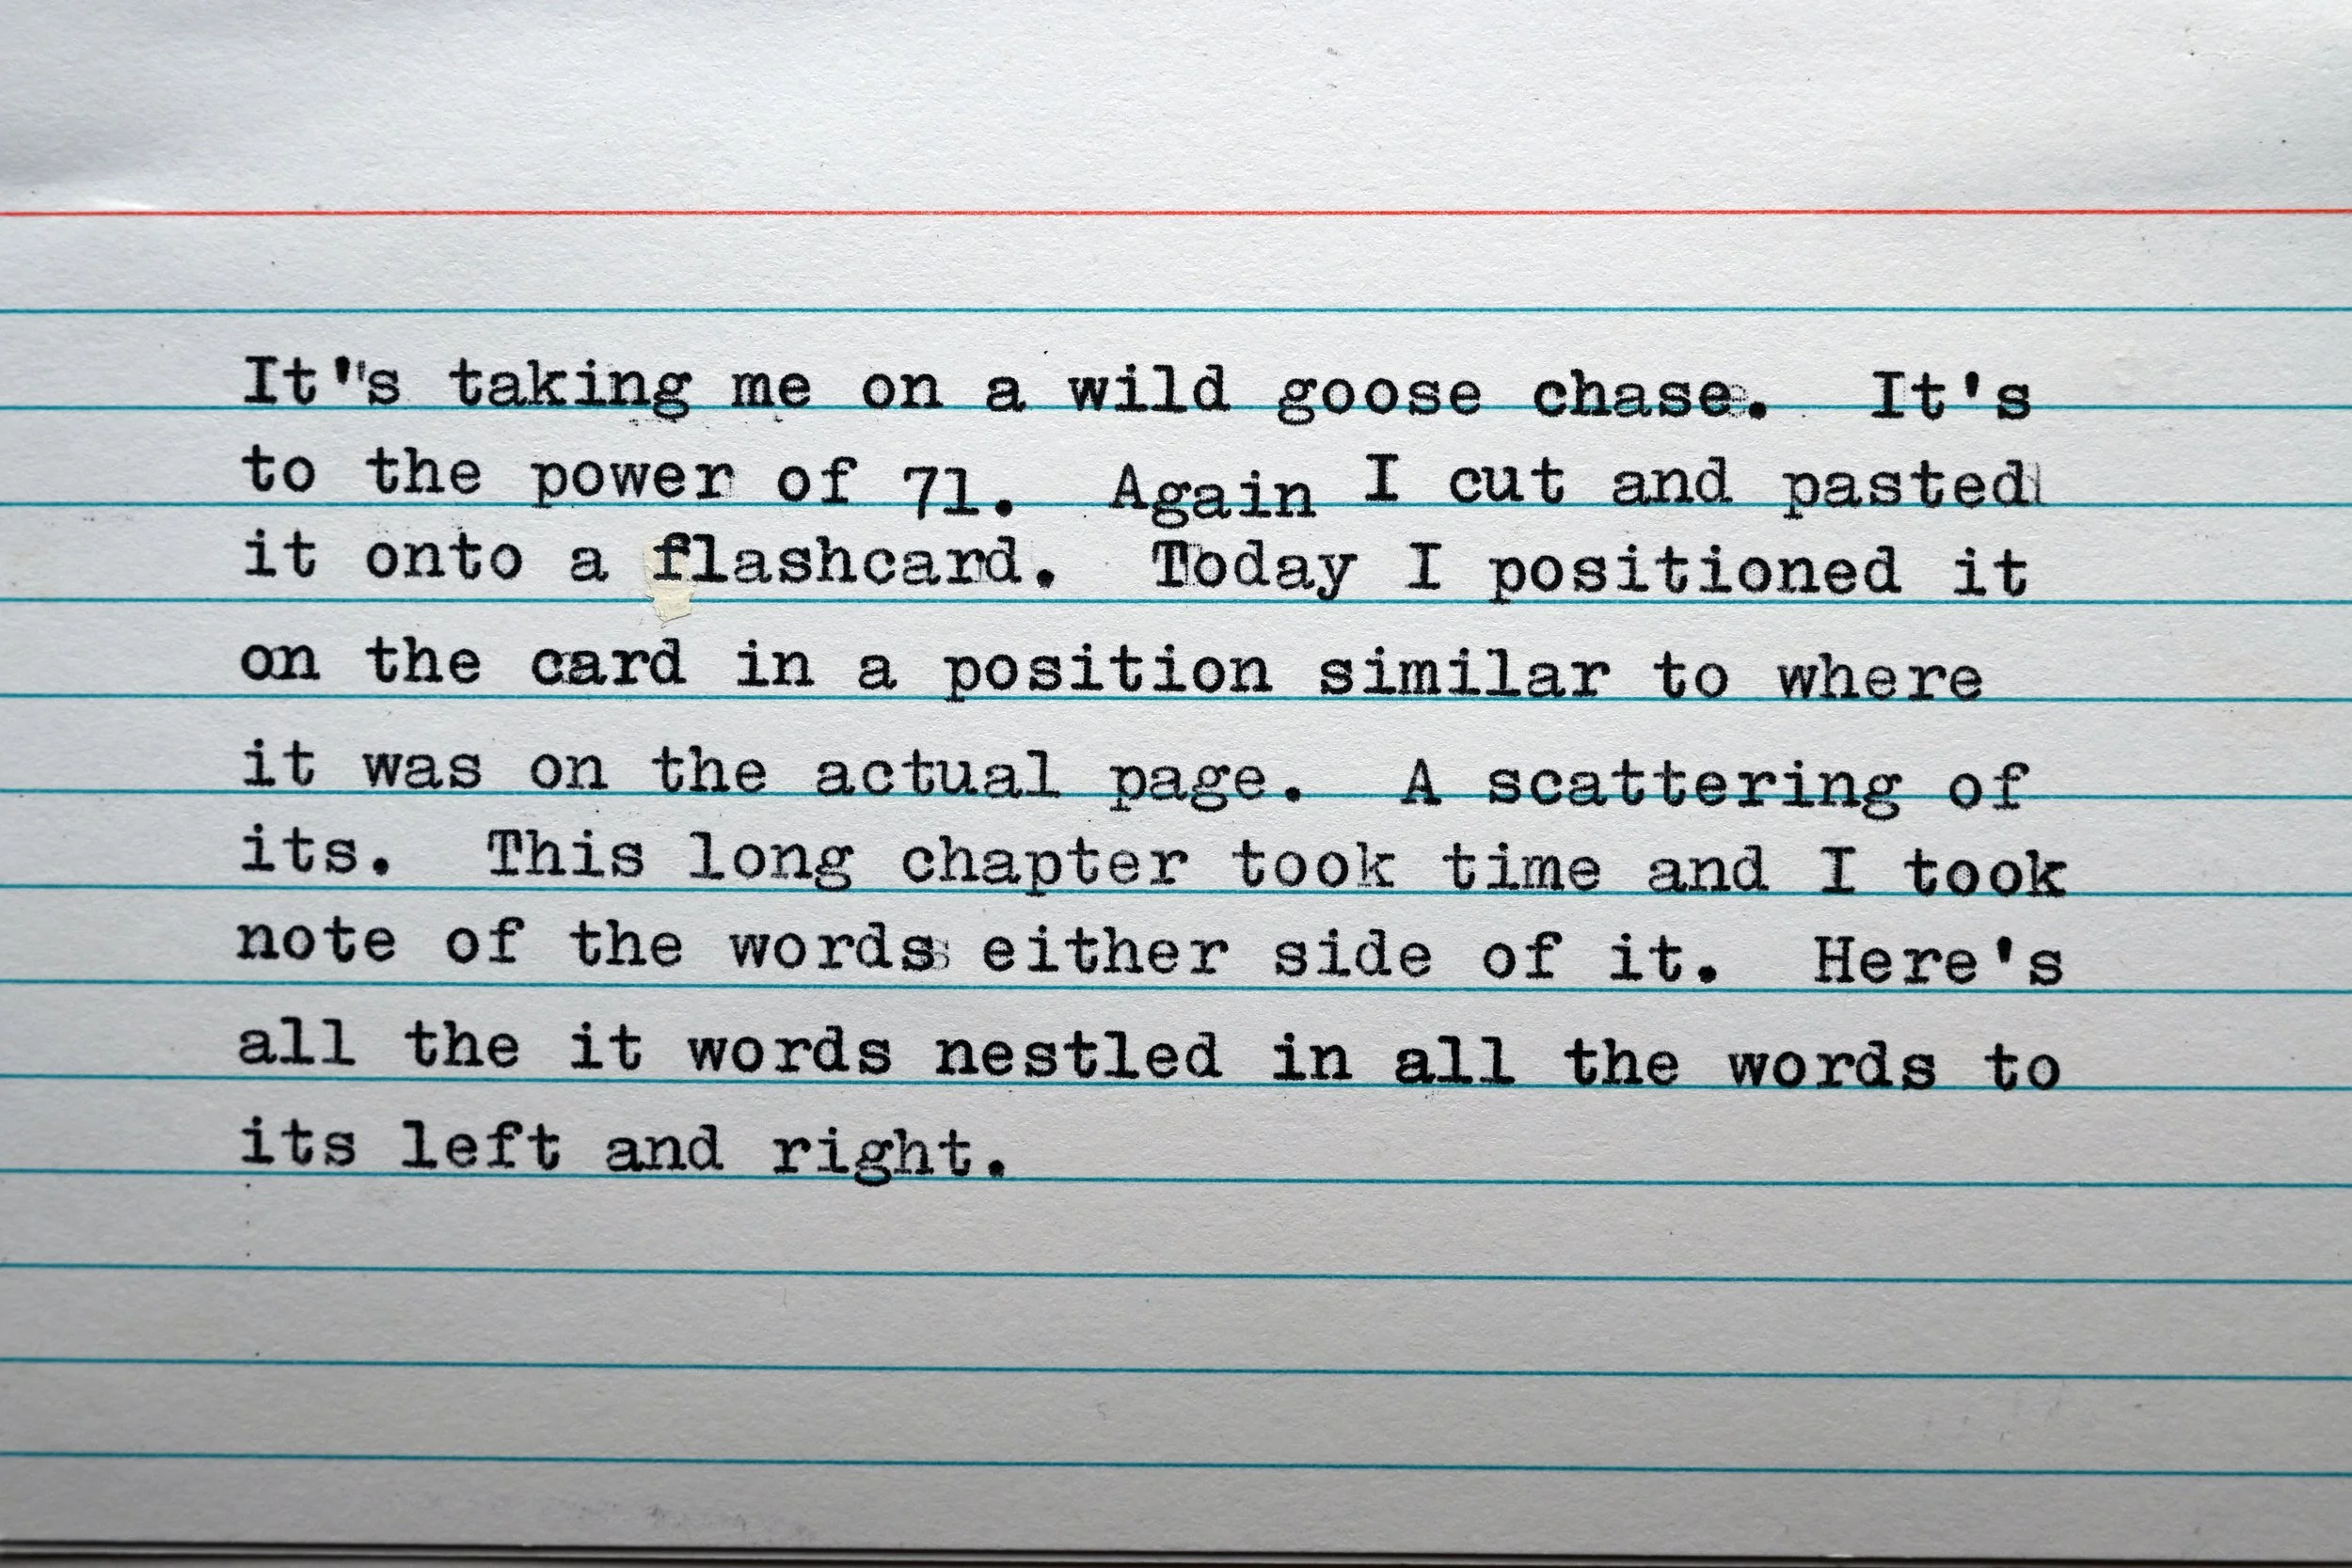 It's taking me on a wild goose chase.  It's
to the power of 71.  Again I cut and pasted
it onto a flashcard.  Today I positioned it
on the card in a position similar to where
it was on the actual page.  A scattering of
its.  This long chapter took time and I took
note of the words either side of it.  Here's
all the it words nestled in all the words to
its left and right.